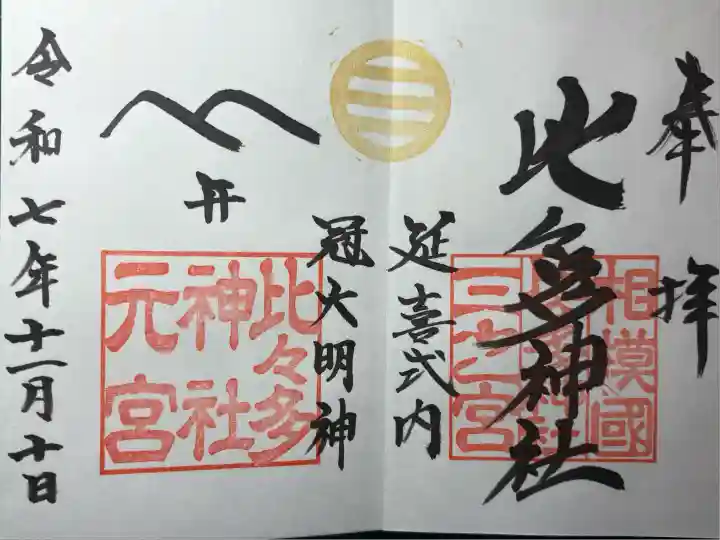 奉拝
相模國
三之宮
比々多神社
延喜式内
冠大明神
三
开
比々多
神社
元宮
令和七年十一月十日